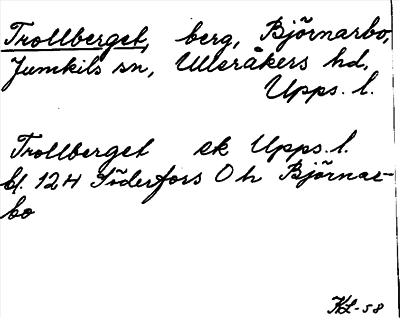 Trollberget, berg, Björnarbo,
Jumkils sn, Ulleråkers hd,
Upps. l.
Trollberget ek Upps. l.
bl. 12H Söderfors Oh Björnar-
bo
KL-58